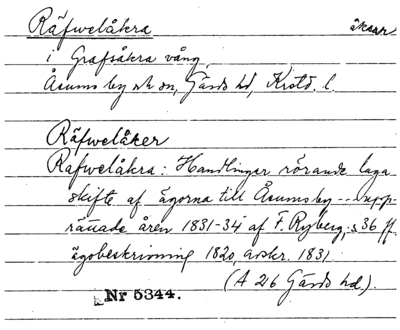 Räfwelåkra åkrar
i Grafsåkra vång,
Åsums by o sn, Gärds hd, Krstd. l.
Räfwelåker
Räfwelåkra: Handlingar rörande laga
skifte af ägorna till Åsums by -- upp-
rättade åren 1831-34 af F. Ryberg, s 36 ff.
ägobeskrivning 1820, avskr. 1831.
(A 216 Gärds hd.).
Nr 5344.